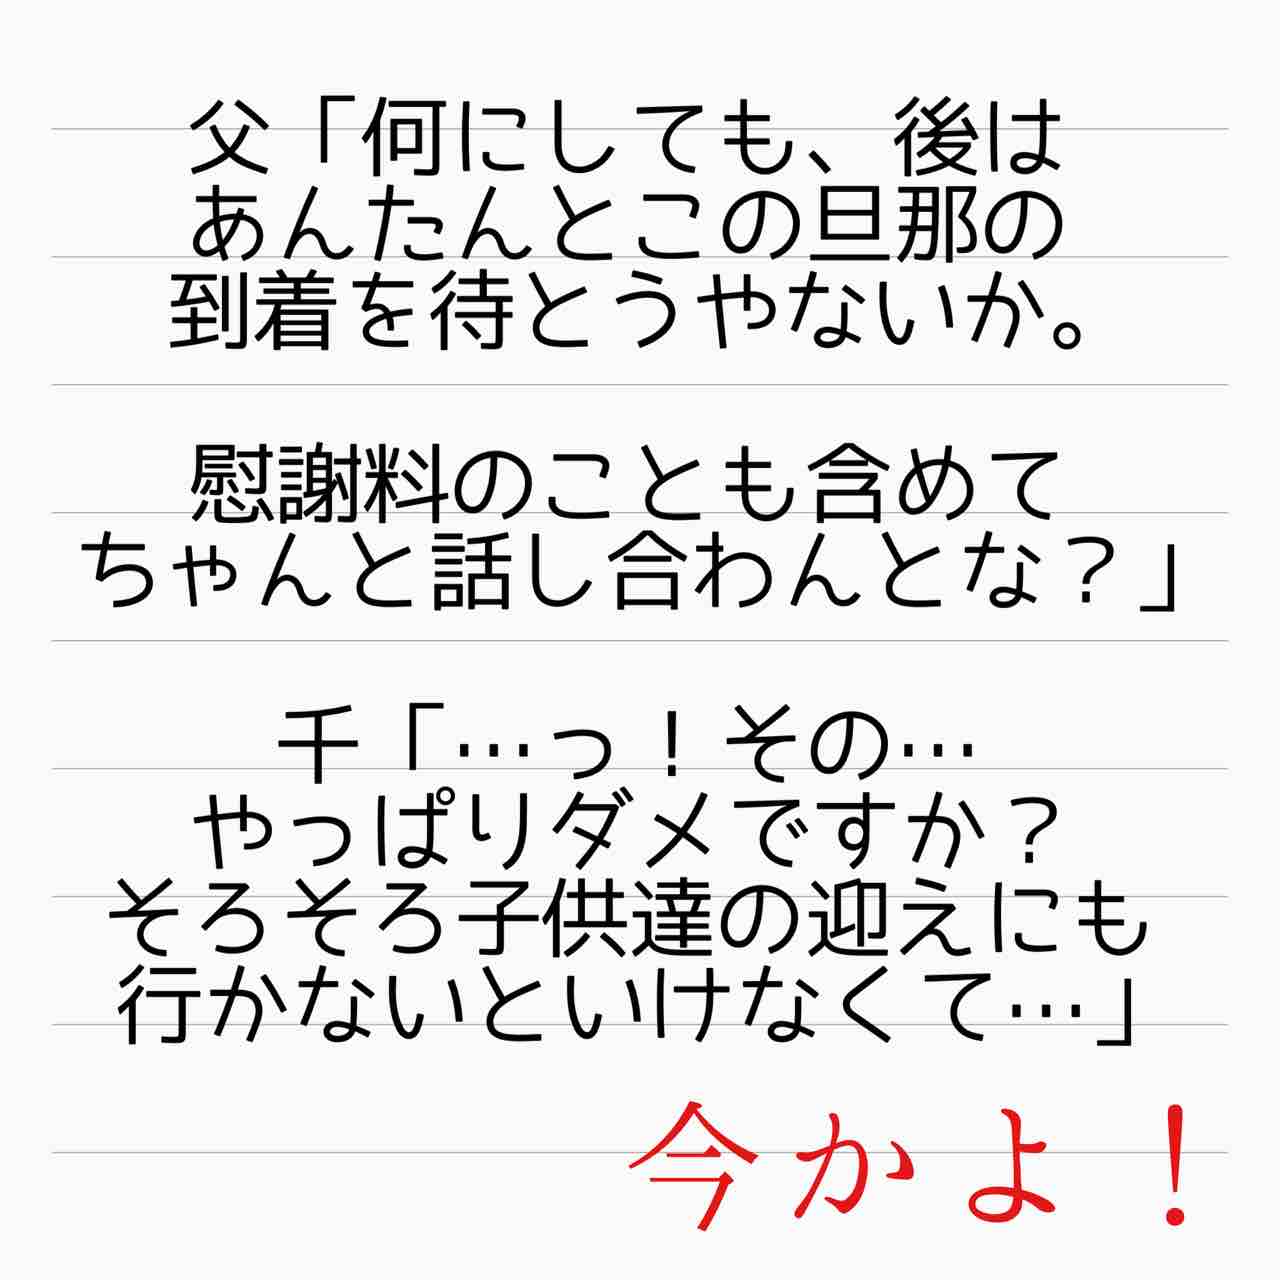 父「何にしても、後は
あんたんとこの旦那の
到着を待とうやないか。
慰謝料のことも含めて
ちゃんと話し合わんとな？」
千「…っ！その…
やっぱりダメですか？
そろそろ子供達の迎えにも
行かないといけなくて…」
今かよ！